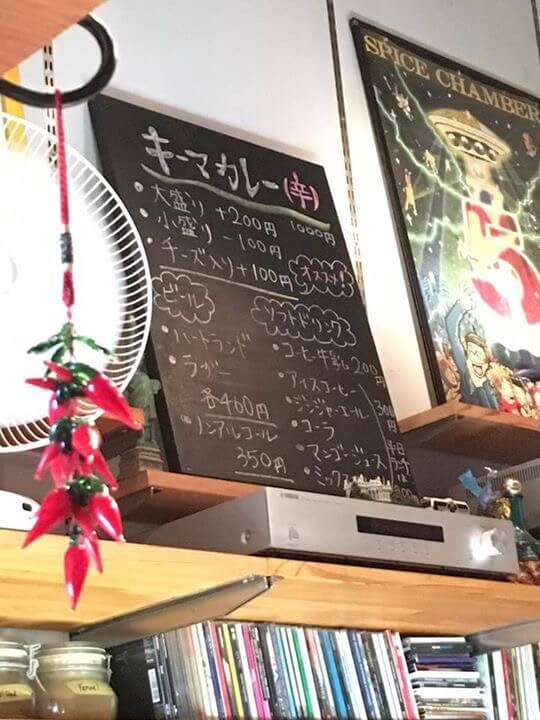 キーマカレー(辛)
1000円
・大盛り +200円
・小盛り -100円
・チーズ入り+100円
オススメ!
ビール
・ハートランド
・ラガー
各460円
・ノンアルコール
350円
ソフトドリンク
・コーヒー牛乳 200円
・アイスコーヒー
・ジンジャーエール
・コーラ
・マンゴージュース
・ミックス
300円
SPICE CHAMBER
YAMAHA
Fennel